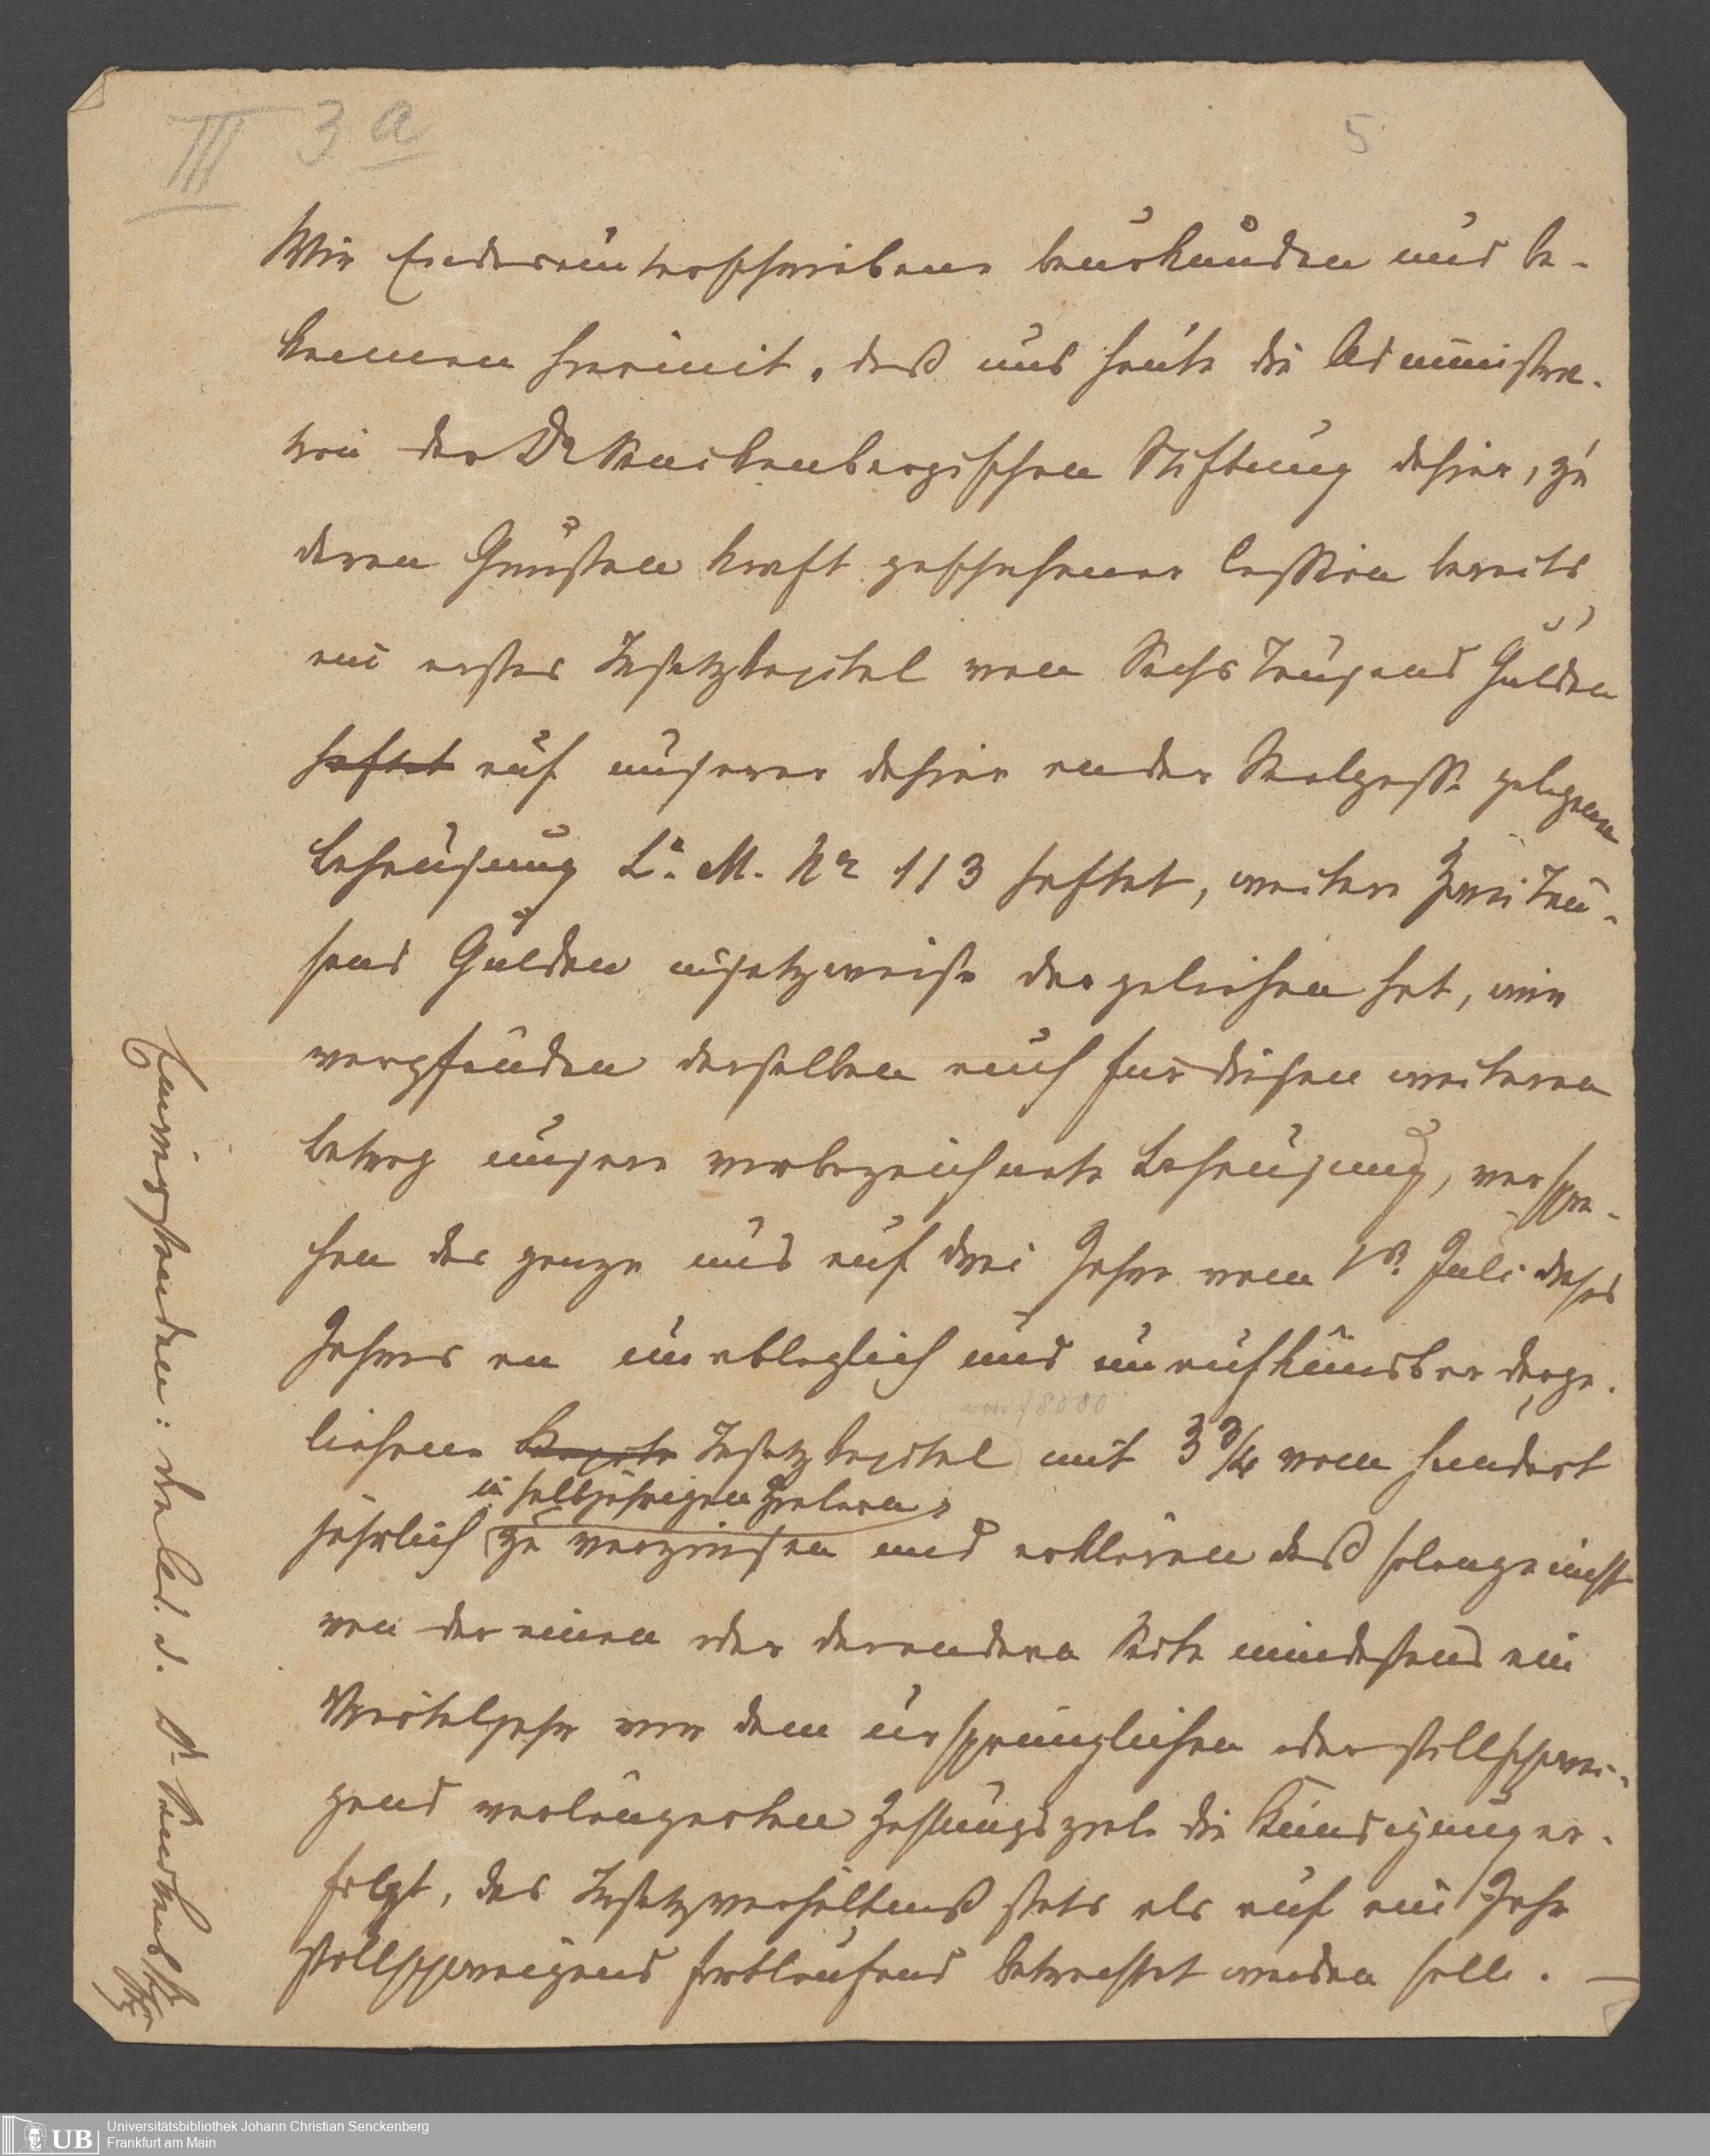 III 3 a
5
Wir Endesunterschriebene beurkunden und be-
kennen hiermit, daß uns heute die Administra-
tion der Dr Senckenbergischen Stiftung dahier, zu
deren Gunsten kraft geschehener Cession bereits
ein erstes Insatzkapital von Sechs Tausend Gulden
haftet auf unserer dahier in der Saalgasse gelegenen
Behausung La. M. Nr 113 haftet, weitere Zwei Tau-
send Gulden insatzweise dargeliehen hat, wir
verpfänden derselben auch für diesen weiteren
Betrag unsere vorbezeichnete Behausung, verspre-
chen das ganze uns auf drei Jahre vom Juli dieses
Jahres an unableglich und unaufkündbar darge-
von f 8000
liehene Insatzkapital mit 3 3/4 vom hundert
in halbjährigen Zielern
jährlich zu verzinsen und erklären daß solange nicht
von der einen oder der andern Seite mindestens ein
Vierteljahr vor dem ursprünglichen oder stillschwei-
gend verlängerten Zahlungsziele die Kündigung er-
folgt, das Insatzverhältniß stets als auf ein Jahr
stillschweigend fortlaufend betrachtet werden solle. —
Einverstanden:
Universitätsbibliothek Johann Christian Senckenberg
Frankfurt am Main
UB